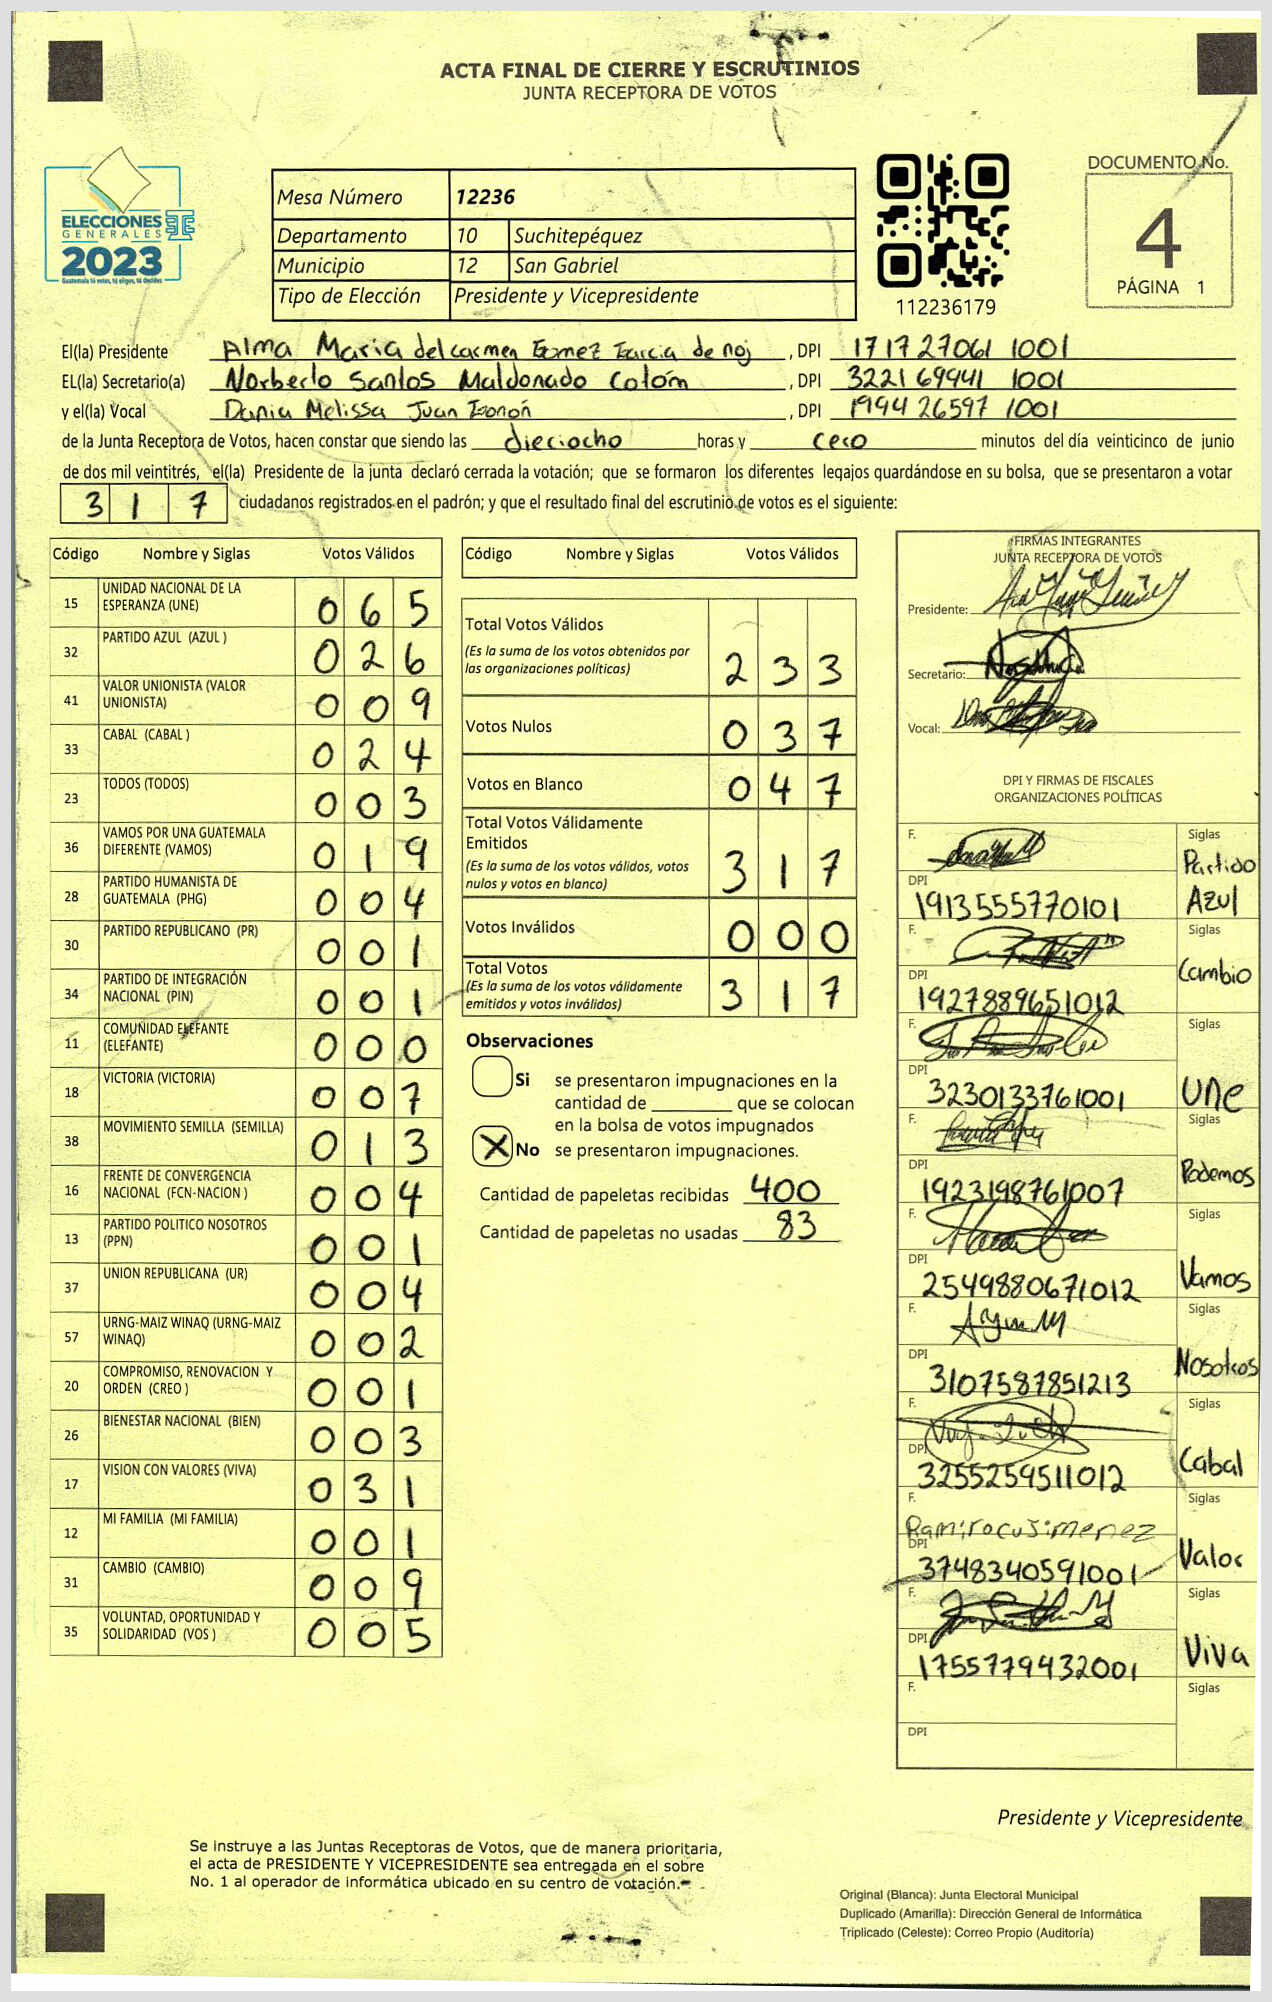 ACTA FINAL DE CIERRE Y ESCRUTINIOS
JUNTA RECEPTORA DE VOTOS
ELECCIONES
GENERALES
2023
Guatemala tú votas, tú eliges, tú decides
Mesa Número 12236
Departamento 10 Suchitepéquez
Municipio 12 San Gabriel
Tipo de Elección Presidente y Vicepresidente
112236179
DOCUMENTO No.
4
PÁGINA 1
El(la) Presidente Alma Maria del carmen Gomez Garcia de Noj, DPI 1717 27061 1001
EL(la) Secretario(a) Norberto Santos Maldonado Colóm, DPI 3221 69941 1001
y el(la) Vocal Dania Melissa Juan Gonón, DPI 1994 26597 1001
de la Junta Receptora de Votos, hacen constar que siendo las dieciocho horas y cero minutos del día veinticinco de junio
de dos mil veintitrés, el(la) Presidente de la junta declaró cerrada la votación; que se formaron los diferentes legajos guardándose en su bolsa, que se presentaron a votar
317 ciudadanos registrados en el padrón; y que el resultado final del escrutinio de votos es el siguiente:
Código Nombre y Siglas Votos Válidos
15 UNIDAD NACIONAL DE LA ESPERANZA (UNE) 065
32 PARTIDO AZUL (AZUL ) 026
41 VALOR UNIONISTA (VALOR UNIONISTA) 009
33 CABAL (CABAL ) 024
23 TODOS (TODOS) 003
36 VAMOS POR UNA GUATEMALA DIFERENTE (VAMOS) 019
28 PARTIDO HUMANISTA DE GUATEMALA (PHG) 004
30 PARTIDO REPUBLICANO (PR) 001
34 PARTIDO DE INTEGRACIÓN NACIONAL (PIN) 001
11 COMUNIDAD ELEFANTE (ELEFANTE) 000
18 VICTORIA (VICTORIA) 007
38 MOVIMIENTO SEMILLA (SEMILLA) 013
16 FRENTE DE CONVERGENCIA NACIONAL (FCN-NACION ) 004
13 PARTIDO POLITICO NOSOTROS (PPN) 001
37 UNION REPUBLICANA (UR) 004
57 URNG-MAIZ WINAQ (URNG-MAIZ WINAQ) 002
20 COMPROMISO, RENOVACION Y ORDEN (CREO ) 001
26 BIENESTAR NACIONAL (BIEN) 003
17 VISION CON VALORES (VIVA) 031
12 MI FAMILIA (MI FAMILIA) 001
31 CAMBIO (CAMBIO) 009
35 VOLUNTAD, OPORTUNIDAD Y SOLIDARIDAD (VOS ) 005
Código Nombre y Siglas Votos Válidos
Total Votos Válidos
(Es la suma de los votos obtenidos por las organizaciones políticas) 233
Votos Nulos 037
Votos en Blanco 047
Total Votos Válidamente Emitidos
(Es la suma de los votos válidos, votos nulos y votos en blanco) 317
Votos Inválidos 000
Total Votos
(Es la suma de los votos válidamente emitidos y votos inválidos) 317
Observaciones
Si se presentaron impugnaciones en la
cantidad de ________ que se colocan
en la bolsa de votos impugnados
X No se presentaron impugnaciones.
Cantidad de papeletas recibidas 400
Cantidad de papeletas no usadas 83
FIRMAS INTEGRANTES
JUNTA RECEPTORA DE VOTOS
Presidente:
Secretario:
Vocal:
DPI Y FIRMAS DE FISCALES
ORGANIZACIONES POLÍTICAS
F. Siglas Partido Azul
DPI 1913555770101
F. Siglas Cambio
DPI 1927889651012
F. Siglas UNE
DPI 3230133761001
F. Siglas Podemos
DPI 1923198761007
F. Siglas Vamos
DPI 2549880671012
F. Siglas Nosotros
DPI 3107587851213
F. Siglas Cabal
DPI 3255259511012
F. Siglas Valor
DPI 3748340591001
F. Siglas Viva
DPI 1755779432001
F. Siglas
DPI
Presidente y Vicepresidente
Se instruye a las Juntas Receptoras de Votos, que de manera prioritaria,
el acta de PRESIDENTE Y VICEPRESIDENTE sea entregada en el sobre
No. 1 al operador de informática ubicado en su centro de votación.
Original (Blanca): Junta Electoral Municipal
Duplicado (Amarilla): Dirección General de Informática
Triplicado (Celeste): Correo Propio (Auditoría)